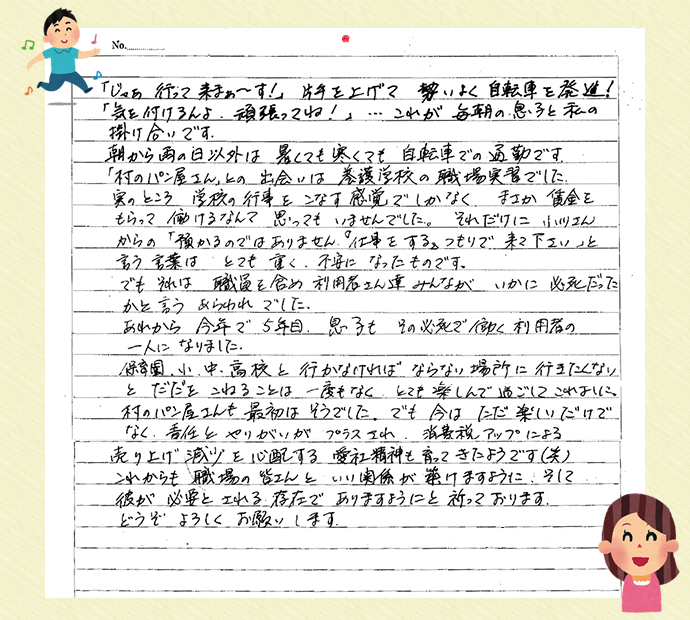 No.
「じゃあ 行って 来まぁ〜す!」 片手を上げて 勢いよく 自転車を発進!
「気を付けるんよ. 頑張ってね!」 … これが 毎朝の息子と私の
掛け合いです.
朝から雨の日以外は 暑くても寒くても 自転車での通勤です.
「村のパン屋さん」との 出会いは 養護学校の職場実習でした.
実のところ 学校の行事を こなす感覚でしかなく. まさか 賃金を
もらって 働けるなんて 思っても いませんでした。 それだけに 小川さん
からの「預かるのではありません『仕事をする』つもりで 来て下さい」と
言う言葉は とても 重く. 不安に なったものです。
でも それは 職員を含め 利用者さん達 みんなが いかに 必死だった
かと言う あらわれ でした.
あれから 今年で 5年目. 息子も その必死で働く利用者の
一人に なりました.
保育園. 小. 中. 高校と 行かなければ ならない場所に 行きたくない
と だだを こねることは 一度もなく とても楽しんで過ごしてこれました.
村のパン屋さんも 最初は そうでした. でも 今は ただ 楽しいだけで
なく. 責任と やりがいが プラスされ. 消費税アップによる
売り上げ減少を心配する 愛社精神も育ってきたようです(笑)
これからも 職場の皆さんと いい関係が 築けますように. そして
彼が 必要とされる存在で ありますようにと祈っております.
どうぞ よろしく お願い します.